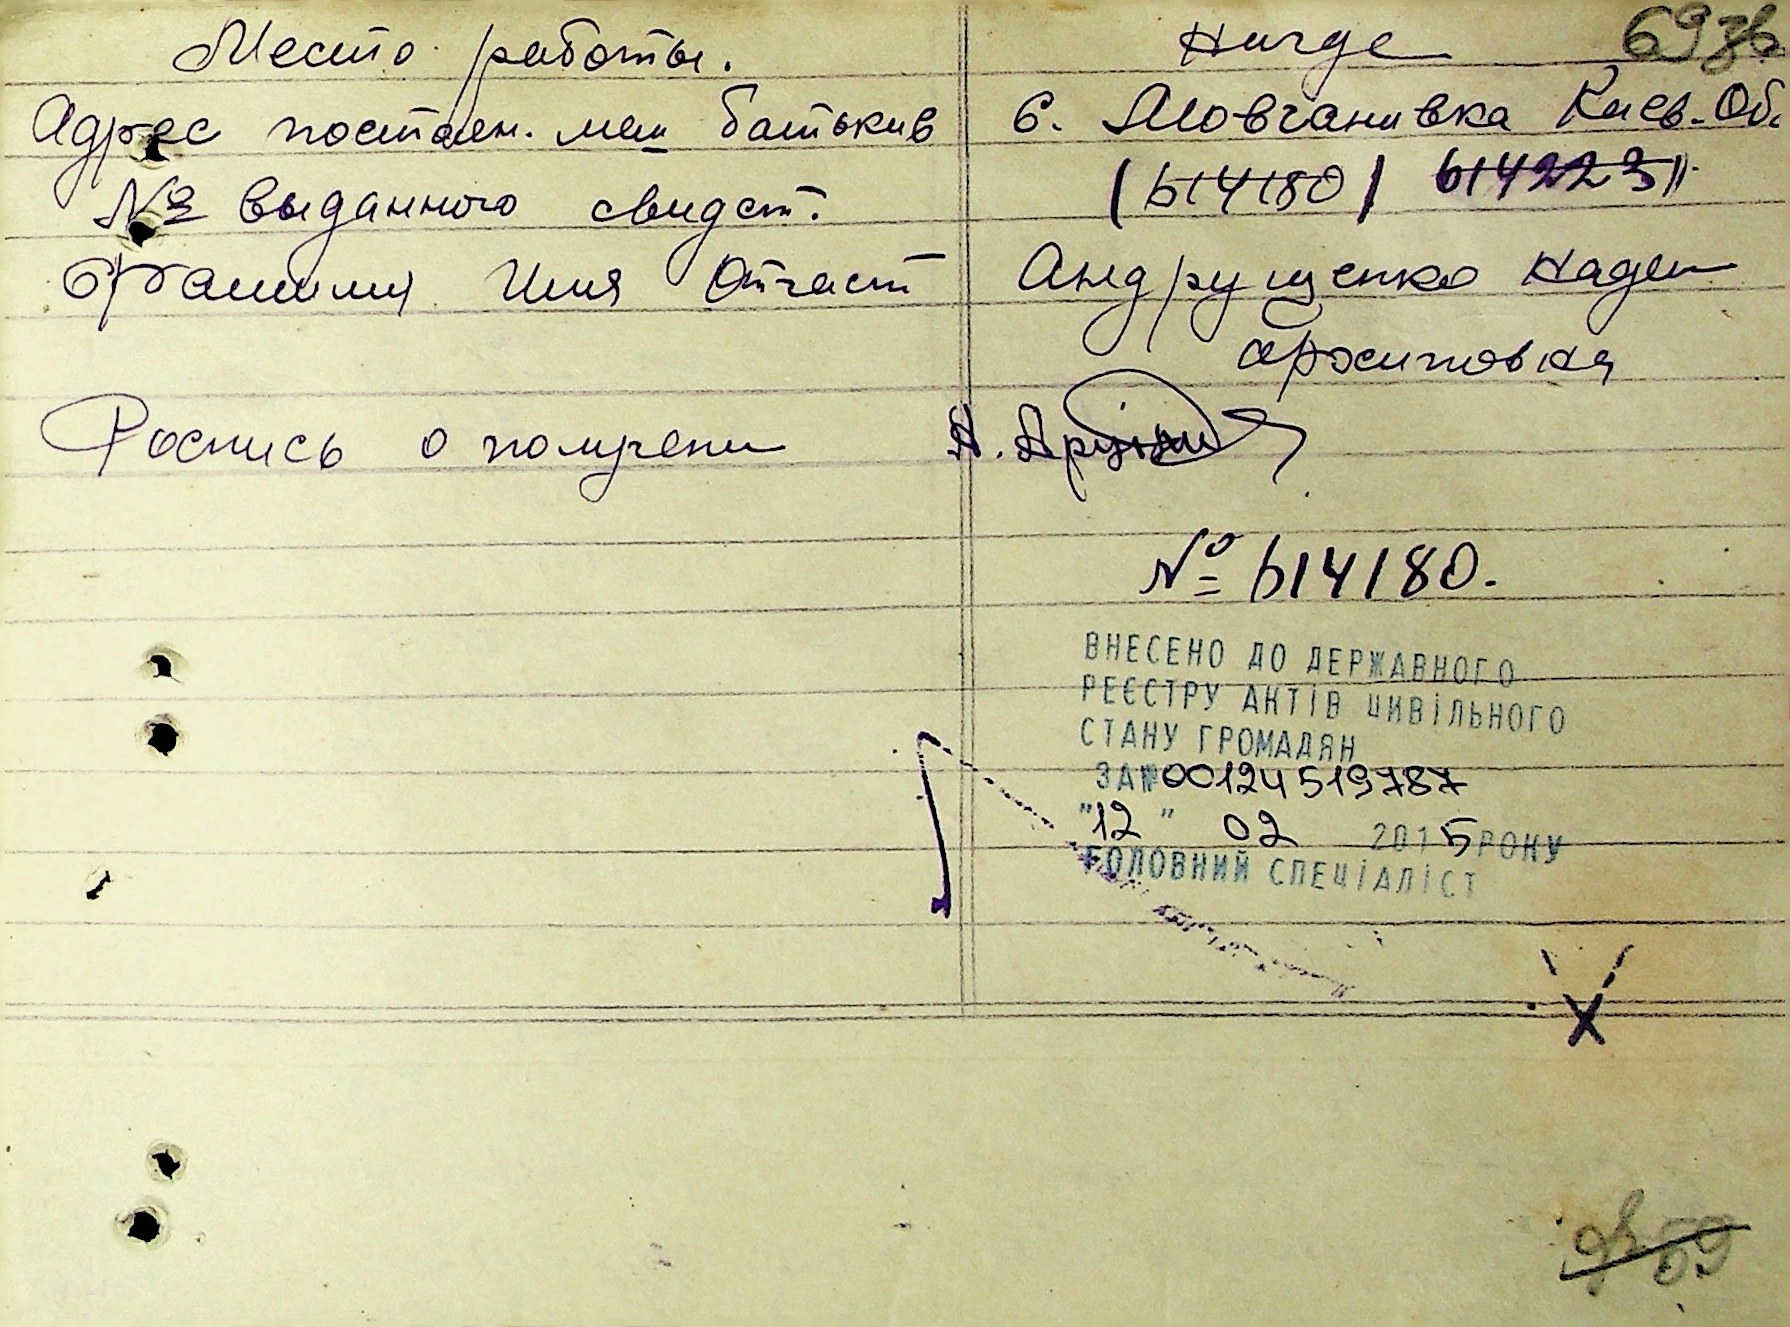 693б
Место работы. Нигде
Адрес постоян. меш батькив с. Мовчанивка Киев. Об.
№ выданного свидет. (614180) 614223)
Фамилия Имя Отчест Андрущенко Надеж
Архиповна
Роспись о получени
№ 614180.
ВНЕСЕНО ДО ДЕРЖАВНОГО
РЕЄСТРУ АКТІВ ЦИВІЛЬНОГО
СТАНУ ГРОМАДЯН
ЗА № 00124519787
"12" 02 2015 РОКУ
ГОЛОВНИЙ СПЕЦІАЛІСТ